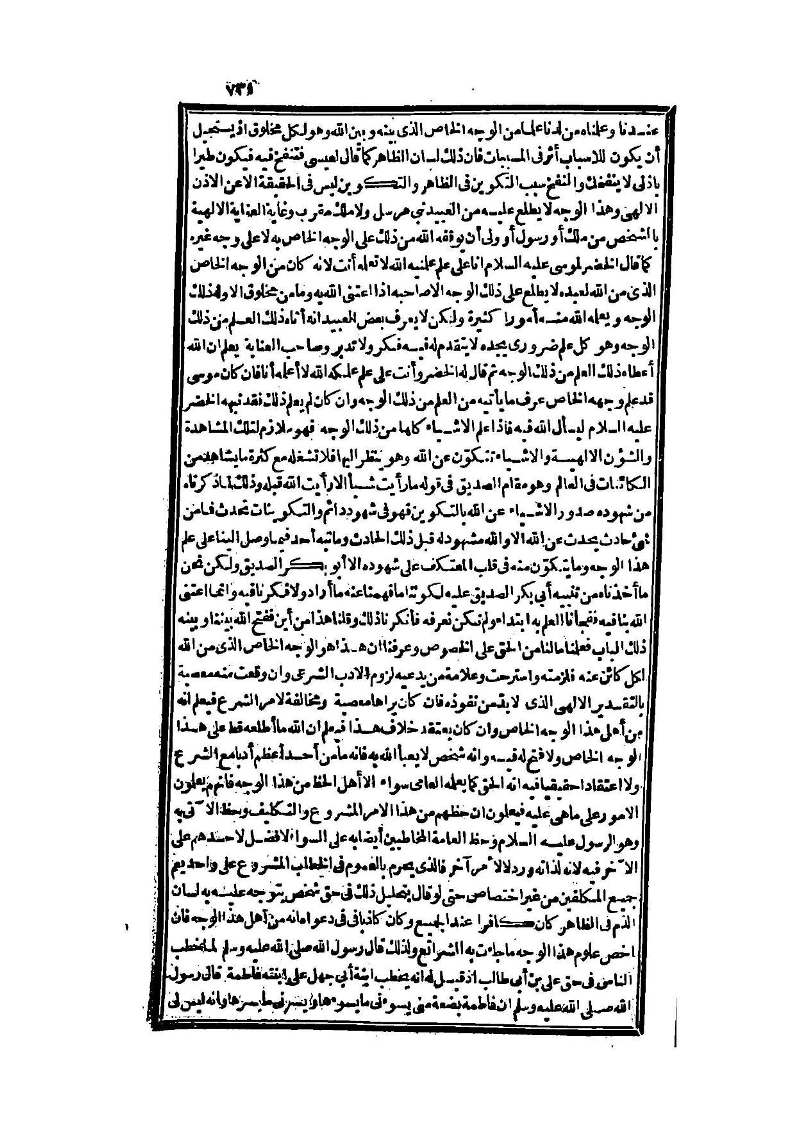 ٧٣٩
عندنا وعلمناه من لدنا علما من الوجه الخاص الذى بينه وبين الله وهو لكل مخلوق اذ يستحيل
أن يكون للاسباب أثر فى المسببات فان ذلك لسان الظاهر كما قال لعيسى فتنفخ فيه فيكون طيرا
باذنى لا بنفخك والنفخ سبب التكوين فى الظاهر والتكوين ليس فى الحقيقة الا عن الاذن
الالهى وهذا الوجه لا يطلع عليه من العبيد نبى مرسل ولا ملك مقرب وغاية العناية الالهية
بالشخص من ملك أو رسول أو ولى أن يوقفه الله من ذلك على الوجه الخاص به لا على وجه غيره
كما قال الخضر لموسى عليه السلام انا على علم علمنيه الله لا تعلمه أنت لانه كان من الوجه الخاص
الذى من الله لعبده لا يطلع على ذلك الوجه الا صاحبه اذا اعتنى الله به وما من مخلوق الا وله ذلك
الوجه ويعلمه الله منه أمورا كثيرة ولكن لا يعرف بعض العبيد انه أتاه ذلك العلم من ذلك
الوجه وهو كل علم ضرورى يجده لا يتقدم له فيه فكر ولا تدبر وصاحب العناية يعلم ان الله
أعطاه ذلك العلم من ذلك الوجه ثم قال له الخضر وأنت على علم علمكه الله لا أعلمه أنا فان كان موسى
قد علم وجهه الخاص عرف ما يأتيه من العلم من ذلك الوجه وان كان لم يعلم ذلك فقد نبهه الخضر
عليه السلام ليسأل الله فيه فاذا علم الاشياء كلها من ذلك الوجه فهو ملازم لتلك المشاهدة
والشؤن الالهية والاشياء تتكون عن الله وهو ينظر اليها فلا تشغله مع كثرة ما يشاهد من
الكائنات فى العالم وهو مقام الصديق فى قوله ما رأيت شيأ الا رأيت الله قبله وذلك لما ذكرناه
من شهوده صدور الاشياء عن الله بالتكوين فهو فى شهود دائم والتكوينات تحدث فما من
شئ حادث يحدث عن الله الا والله مشهود له قبل ذلك الحادث وما نبه أحد فيما وصل الينا على علم
هذا الوجه وما يتكون منه فى قلب المعتكف على شهوده الا أبو بكر الصديق ولكن نحن
ما أخذناه من تنبيه أبى بكر الصديق عليه لكوننا ما فهمنا عنه ما أراد ولا فكرنا فيه وانما اعتنى
الله بنا فيه ففجأنا العلم به ابتداء ولم نكن نعرفه فأنكرنا ذلك وقلنا هذا من أين ففتح الله بيننا وبينه
ذلك الباب فعلمنا ما لنا من الحق على الخصوص وعرفنا ان هذا هو الوجه الخاص الذى من الله
لكل كائن عنه فلزمته واسترحت وعلامة من يدعيه لزوم الادب الشرعى وان وقعت منه معصية
بالتقدير الالهى الذى لا بد من نفوذه فان كان يراها معصية ومخالفة لامر الشرع فيعلم انه
من أهل هذا الوجه الخاص وان كان يعتقد خلاف هذا فيعلم ان الله ما أطلعه قط على هذا
الوجه الخاص ولا فتح له فيه وانه شخص لا يعبأ الله به فانه ما من أحد أعظم أدبا مع الشرع
ولا اعتقادا حقيقيا فيه انه الحق كما يعلمه العامى سواء الا أهل الحظ من هذا الوجه فانهم يعلمون
الامور على ما هى عليه فيعلمون ان حظهم من هذا الامر المشروع والتكليف وحظ الآتى به
وهو الرسول عليه السلام وحظ العامة المخاطبين أيضا به على السواء لا فضل لاحدهم على
الآخر فيه لانه لذاته ورد لا لامر آخر فالذى يحرم بالعموم فى الخطاب المشروع على واحد يعم
جميع المكلفين من غير اختصاص حتى لو قال بتحليل ذلك فى حق شخص يتوجه عليه به لسان
الذم فى الظاهر كان كافرا عند الجميع وكان كاذبا فى دعواه انه من أهل هذا الوجه فان
اخص علوم هذا الوجه ما جاءت به الشرائع ولذلك قال رسول الله صلى الله عليه وسلم لما خطب
الناس فى حق على بن أبى طالب اذ قيل له انه يخطب ابنة أبى جهل على ابنته فاطمة قال رسول
الله صلى الله عليه وسلم ان فاطمة بضعة منى يسوءنى ما يسوءها ويسرنى ما يسرها وانه ليس لى